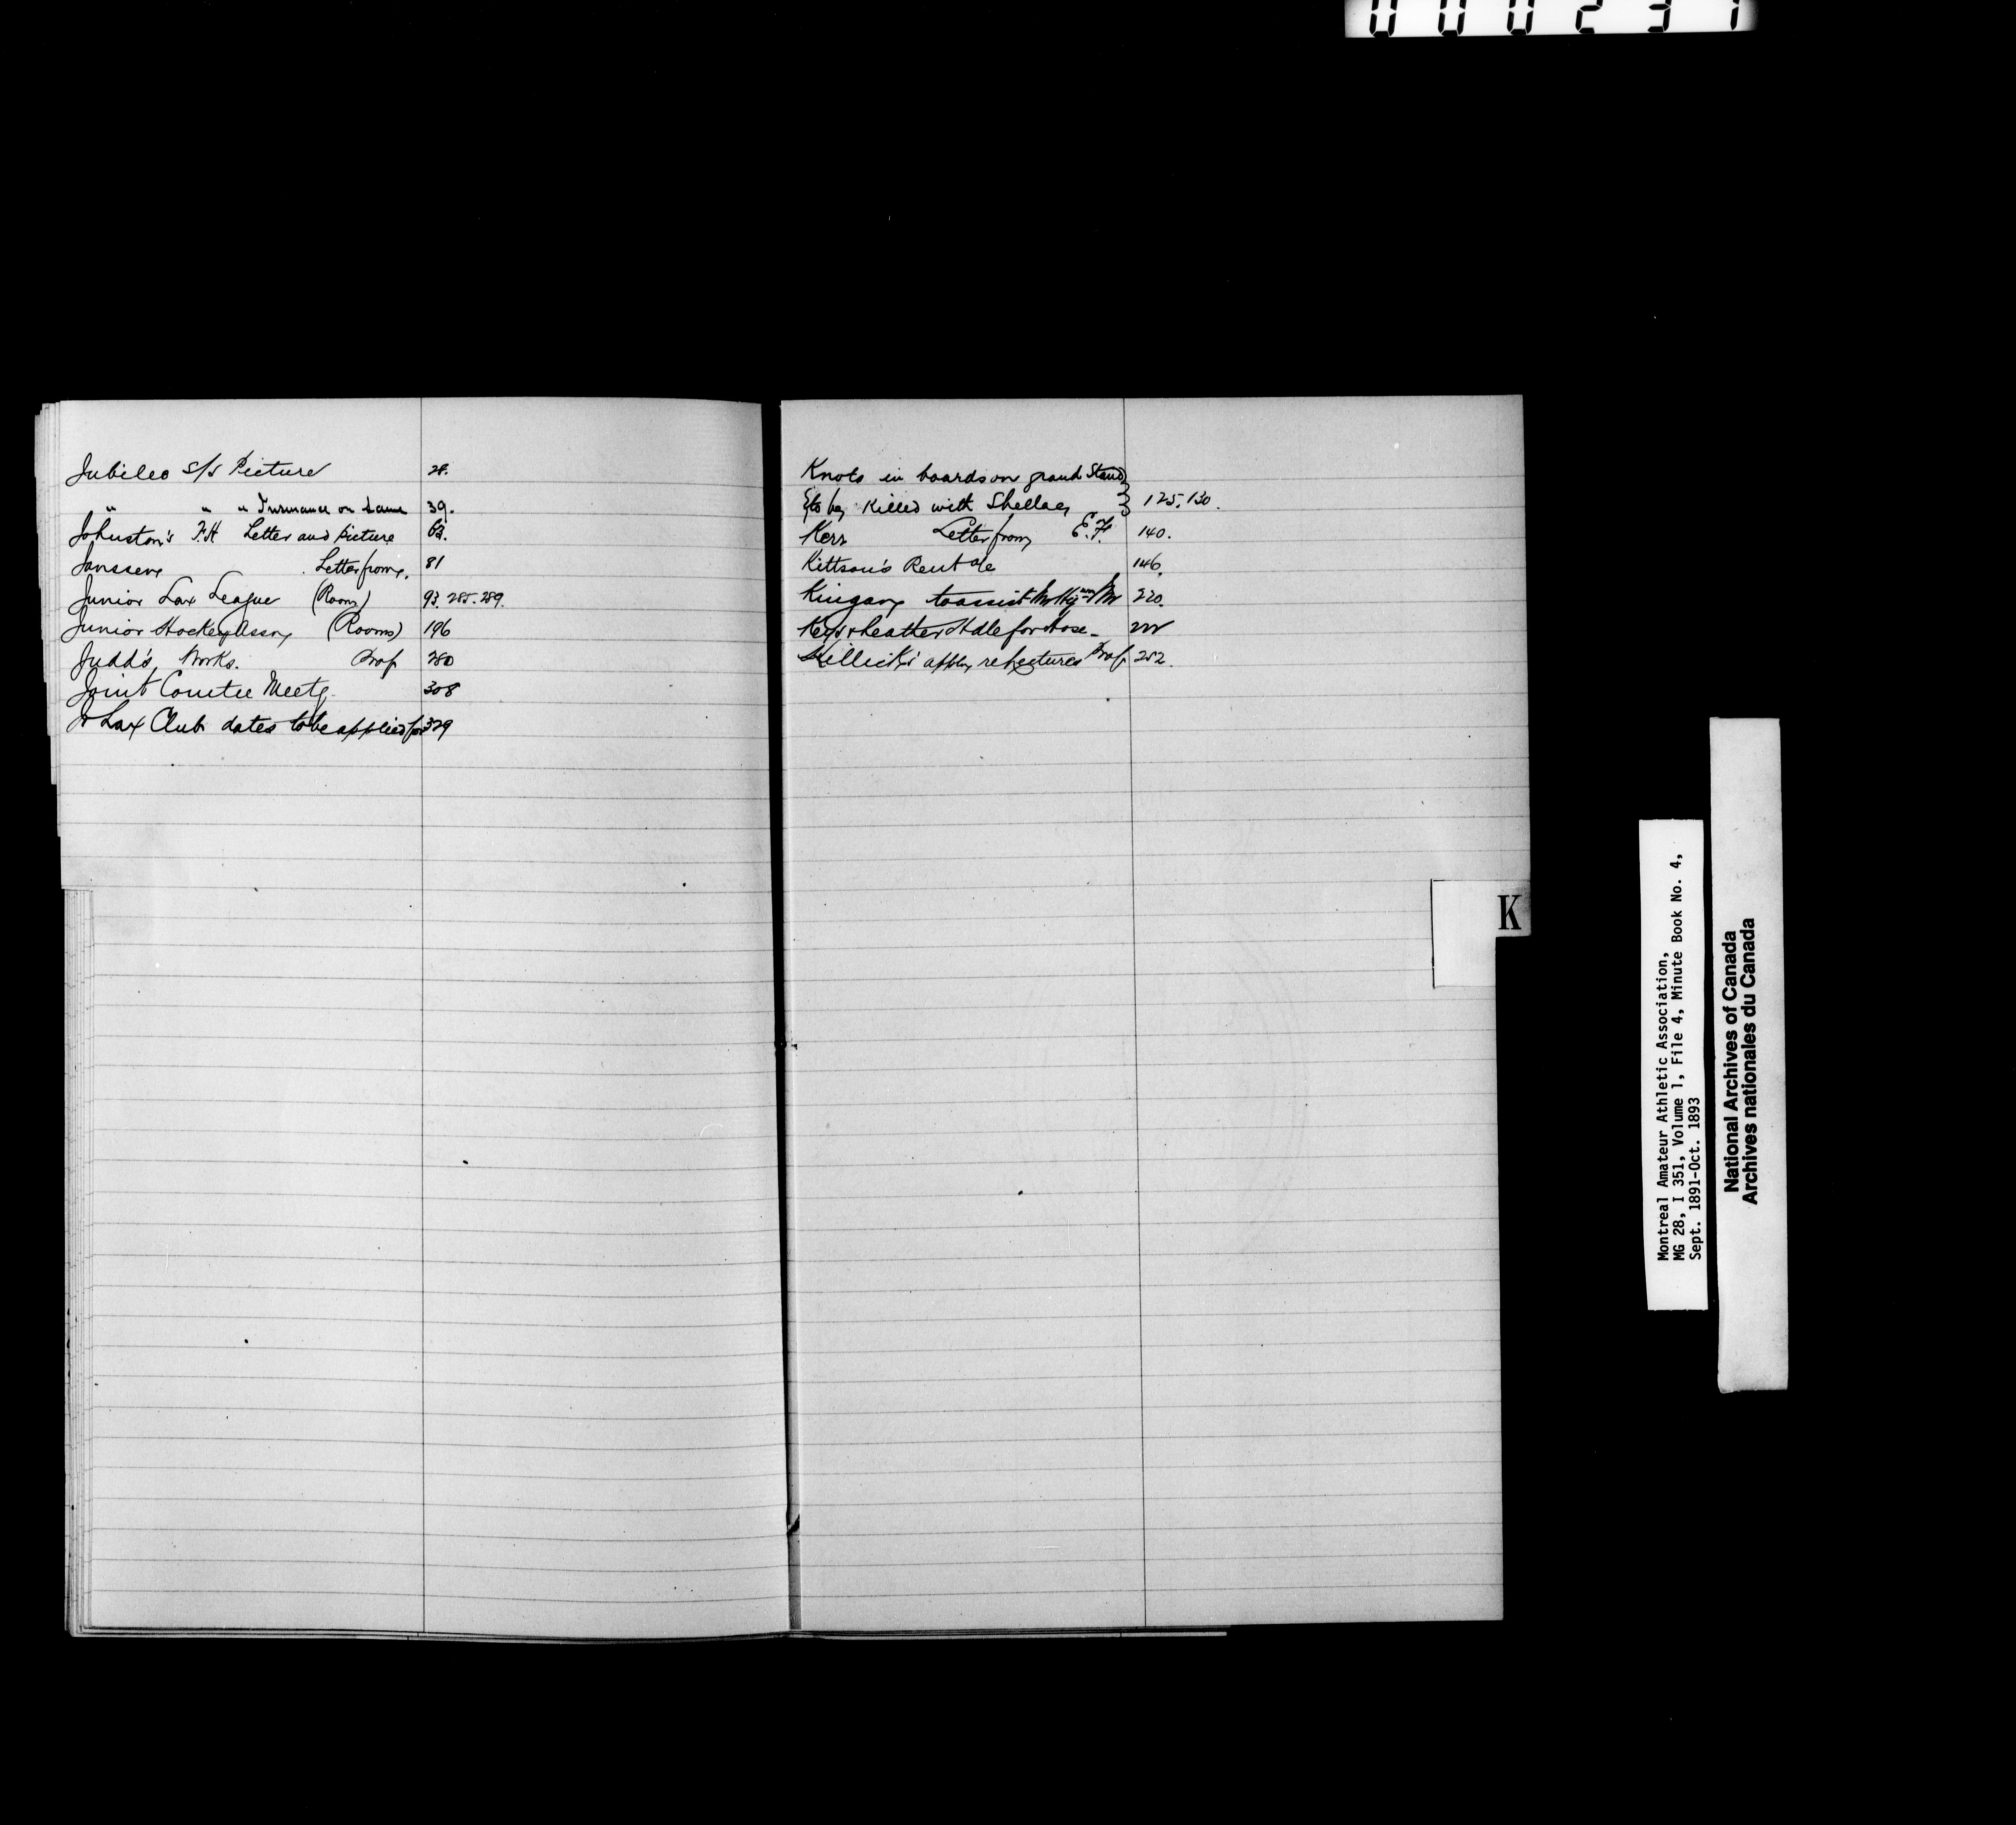 000231
Jubilee S/S Picture 28.
" " " Insurance on same 39.
Johnston's F.H Letter and Picture 63.
Janssen Letter from, 81
Junior Lax League (Room) 93. 285. 289.
Junior Hockey Assn, (Rooms) 196
Judd's, Works. Prof 280
Joint Comtee Meetg. 308
Jr Lax Club dates to be applied for 329
Knots in boards on grand Stand
to be, Killed with Shellac, 125, 130.
Kerr Letter from, E.F. 140.
Kittson's Rent 146.
to assist 220.
Keys & Leather for Hose
Killick's appln re Lectures Prof 252.
K
Montreal Amateur Athletic Association,
MG 28, I 351, Volume 1, File 4, Minute Book No. 4,
Sept. 1891-Oct. 1893
National Archives of Canada
Archives nationales du Canada